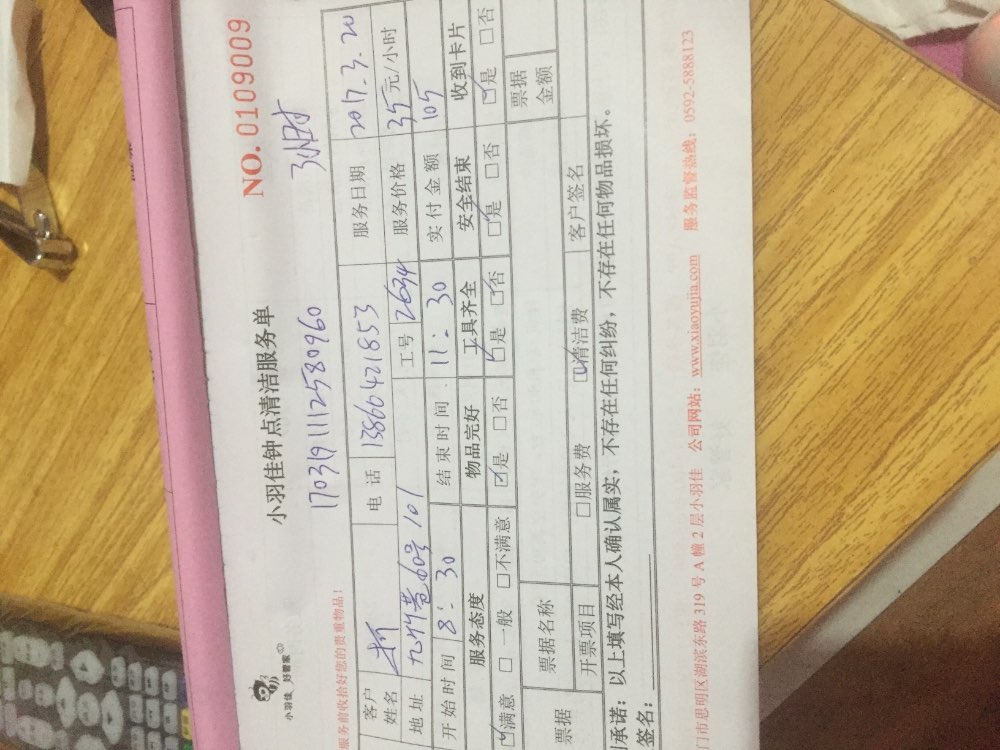 小羽佳 好管家
小羽佳钟点清洁服务单
NO. 0109009
1703191112580960
3小时
服务前收拾好您的贵重物品！
客户姓名
电话 13860421853
服务日期 2017.3.20
地址 60号101
工号 2634
服务价格 35元/小时
开始时间 8:30
结束时间 11:30
实付金额 105
服务态度 物品完好 工具齐全 安全结束 收到卡片
☑满意 □一般 □不满意 ☑是 □否 ☑是 ☑否 ☑是 □否 ☑是 □否
票据 票据名称 票据金额
开票项目 □服务费 ☑清洁费 客户签名
承诺：以上填写经本人确认属实，不存在任何纠纷，不存在任何物品损坏。
签名：
门市思明区湖滨东路319号A幢2层小羽佳 公司网站：www.xiaoyujia.com 服务监督热线：0592-5888123